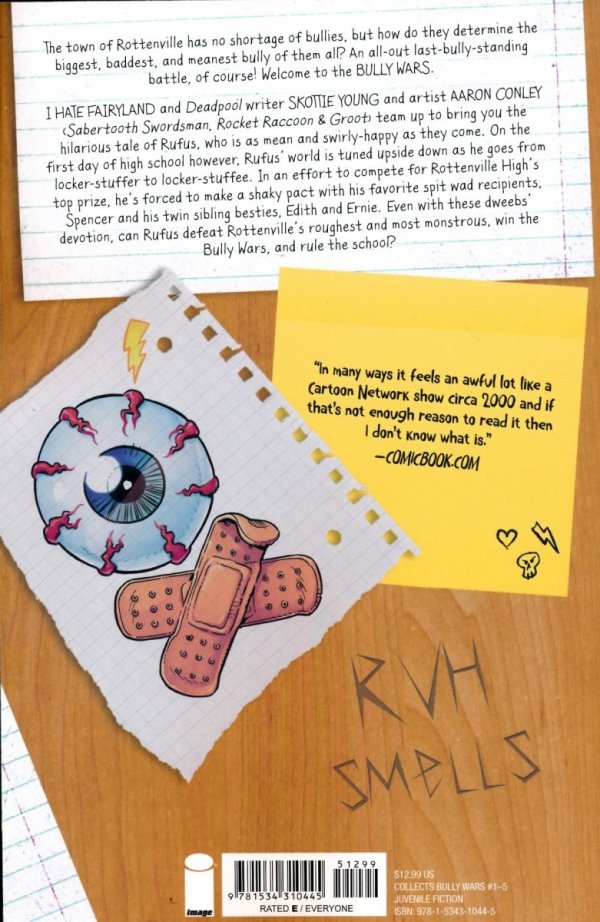 The town of Rottenville has no shortage of bullies, but how do they determine the
biggest, baddest, and meanest bully of them all? An all-out last-bully-standing
battle, of course! Welcome to the BULLY WARS.
I HATE FAIRYLAND and Deadpool writer SKOTTIE YOUNG and artist AARON CONLEY
(Sabertooth Swordsman, Rocket Raccoon & Groot) team up to bring you the
hilarious tale of Rufus, who is as mean and swirly-happy as they come. On the
first day of high school however, Rufus' world is tuned upside down as he goes from
locker-stuffer to locker-stuffee. In an effort to compete for Rottenville High's
top prize, he's forced to make a shaky pact with his favorite spit wad recipients,
Spencer and his twin sibling besties, Edith and Ernie. Even with these dweebs'
devotion, can Rufus defeat Rottenville's roughest and most monstrous, win the
Bully Wars, and rule the school?
"In many ways it feels an awful lot like a
Cartoon Network show circa 2000 and if
that's not enough reason to read it then
I don't know what is."
—COMICBOOK.COM
RVH
SMELLS
image
51299
9 781534 310445
RATED E / EVERYONE
$12.99 US
COLLECTS BULLY WARS #1–5
JUVENILE FICTION
ISBN: 978-1-5343-1044-5